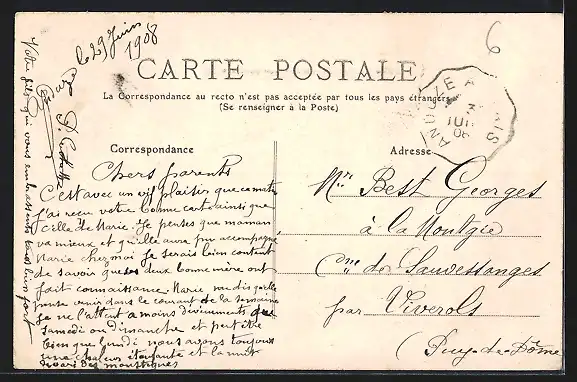 le 29 Juin
1908
6
CARTE POSTALE
La Correspondance au recto n'est pas acceptée par tous les pays étrangers
(Se renseigner à la Poste)
Correspondance
Adresse
Chers parents
C'est avec un vif plaisir que ce matin
j'ai reçu votre bonne carte ainsi que
celle de Marie. Je penses que maman
va mieux et qu'elle aura pu accompagner
Marie chez moi je serais bien content
de savoir que ses deux bonne mère ont
fait connaissance. Marie me dis qu'elle
pense venir dans le courant de la semaine
je ne l'attent a moins d'évènements que
samedi ou dimanche et peut être
bien que lundi nous avons toujours
une chaleur étouffante et la nuit
des moustiques
Votre fils qui vous embrassent tous bien fort
Mr Best Georges
à la Montgie
Cne de Sauvessanges
par Viverols
Puy-de-Dôme